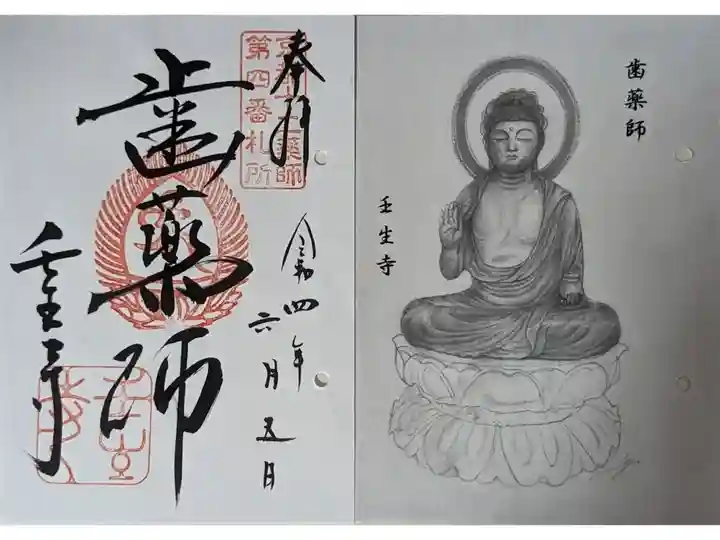 奉拝
京都十二薬師
第四番札所
歯薬師
令和四年
六月五日
壬生寺
歯薬師
壬生寺